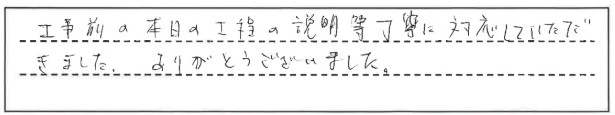 工事前の本日の工程の説明等丁寧に対応していただ
きました。ありがとうございました。